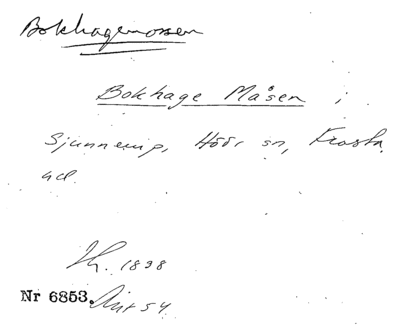 Bokhagemossen
Bokhage Måsen ;
Sjunnerup, Höör sn, Frosta
hd.
1898
Nr 6853.